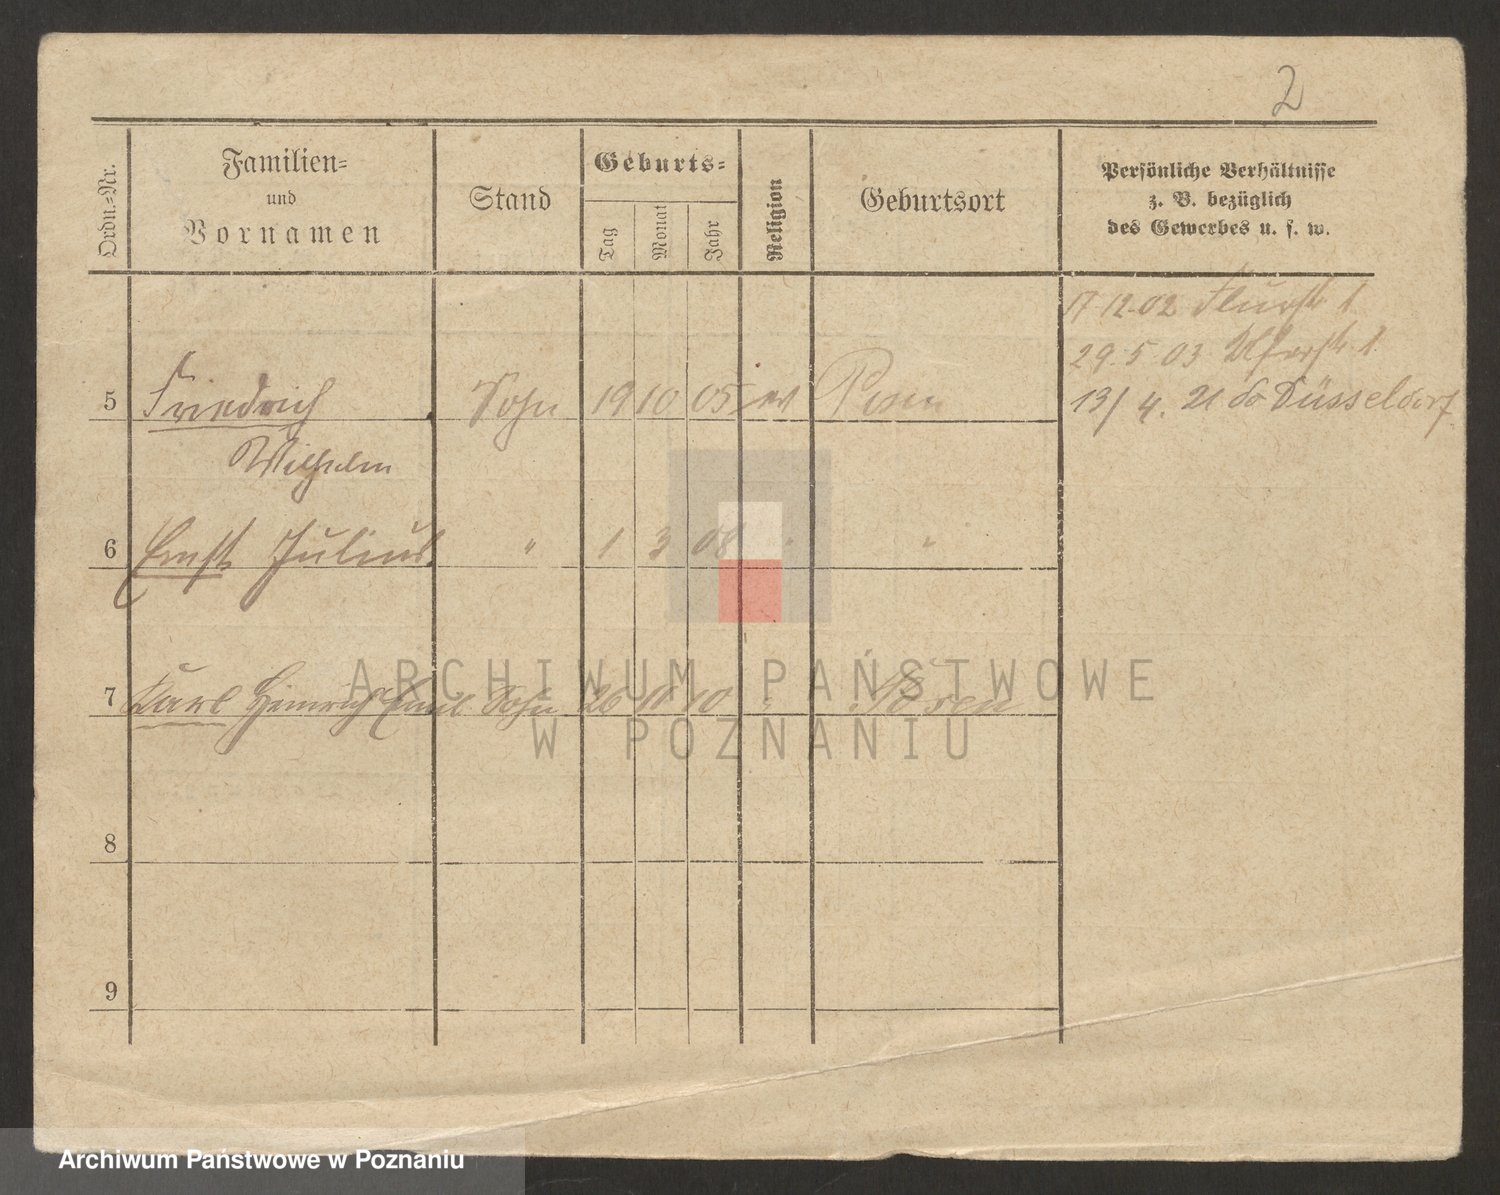 2
Ordn.-Nr.
Familien-
und
Vornamen
Stand
Geburts-
Tag
Monat
Jahr
Religion
Geburtsort
Persönliche Verhältnisse
z. B. bezüglich
des Gewerbes u. s. w.
17-12-02
29.5 03
13/4. 21 Düsseldorf
5 Friedrich Sohn 19 10 05 ev Posen
Wilhelm
6 Ernst Julius " 1 3 08 " "
7 Karl Heinrich Emil Sohn 26 10 " Posen
8
9
ARCHIWUM PAŃSTWOWE
W POZNANIU
Archiwum Państwowe w Poznaniu